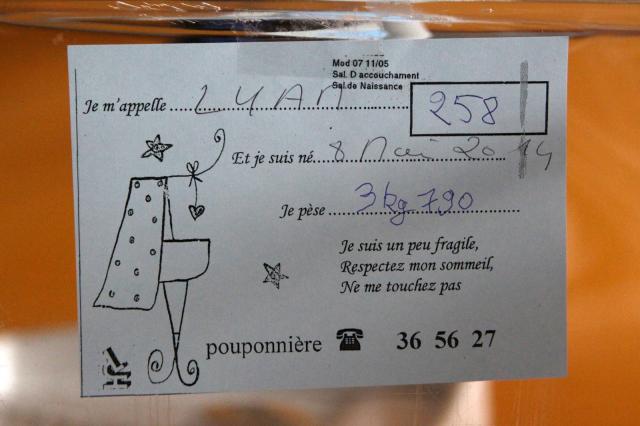 Mod 07 11/05
Sal. D accouchament
Sal.de Naissance
Je m'appelle LYAM
258
Et je suis né 8 Mai 2014
Je pèse 3kg790
Je suis un peu fragile,
Respectez mon sommeil,
Ne me touchez pas
pouponnière 36 56 27